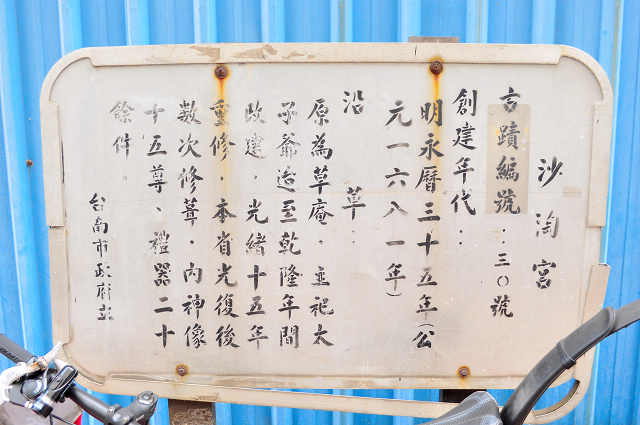 沙淘宮
古蹟編號：三〇號
創建年代：
明永曆三十五年（公
元一六八一年）
沿　革：
原為草庵，主祀太
子爺迨至乾隆年間
改建，光緒十五年
重修，本省光復後
数次修葺，內神像
十五尊、禮器二十
餘件。
台南市政府立